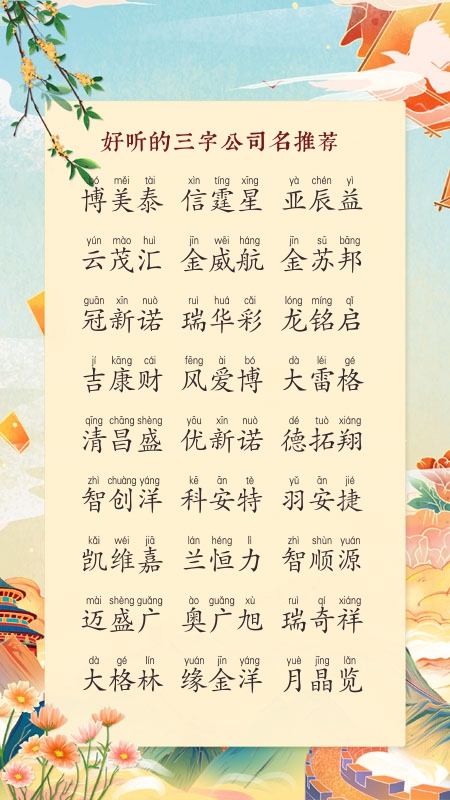 好听的三字公司名推荐
bó měi tài xìn tíng xīng yà chén yì
博美泰 信霆星 亚辰益
yún mào huì jīn wēi háng jīn sū bāng
云茂汇 金威航 金苏邦
guān xīn nuò ruì huá cǎi lóng míng qǐ
冠新诺 瑞华彩 龙铭启
jí kāng cái fēng ài bó dà léi gé
吉康财 风爱博 大雷格
qīng chāng shèng yōu xīn nuò dé tuò xiáng
清昌盛 优新诺 德拓翔
zhì chuàng yáng kē ān tè yǔ ān jié
智创洋 科安特 羽安捷
kǎi wéi jiā lán héng lì zhì shùn yuán
凯维嘉 兰恒力 智顺源
mài shèng guǎng ào guǎng xù ruì qí xiáng
迈盛广 奥广旭 瑞奇祥
dà gé lín yuán jīn yáng yuè jīng lǎn
大格林 缘金洋 月晶览